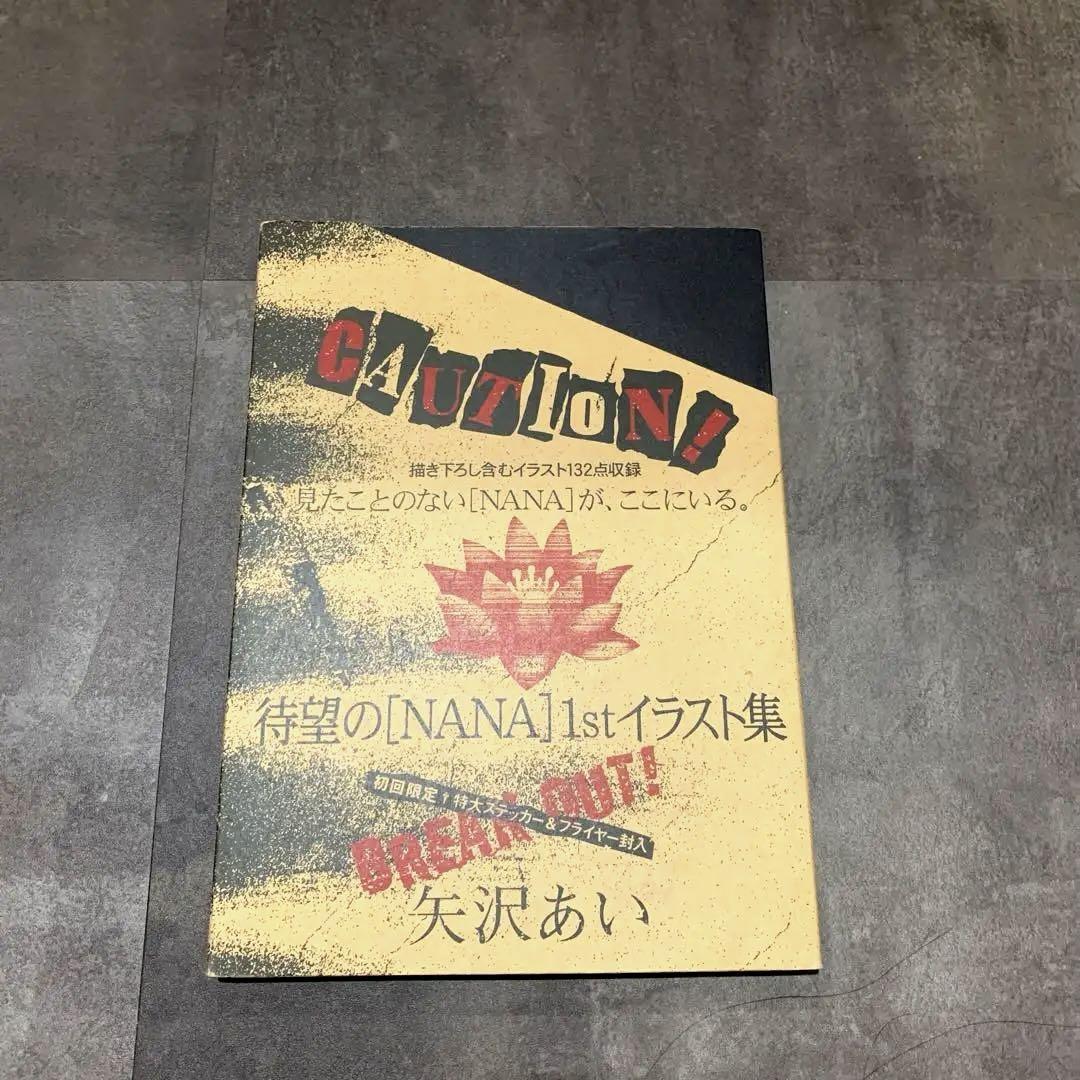 CAUTION!
描き下ろし含むイラスト132点収録
見たことのない[NANA]が、ここにいる。
待望の[NANA]1stイラスト集
BREAK OUT!
初回限定↑特大ステッカー&フライヤー封入
矢沢あい